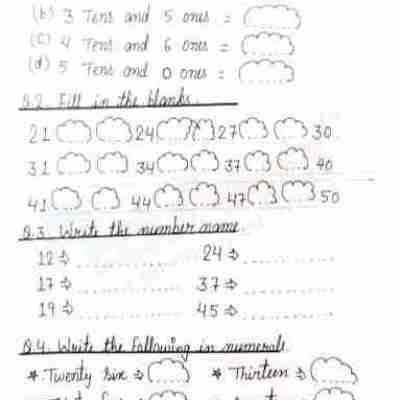 (b) 3 Tens and 5 ones =
(c) 4 Tens and 6 ones =
(d) 5 Tens and 0 ones =
Q.2. Fill in the blanks.
21 24 27 30
31 34 37 40
41 44 47 50
Q.3. Write the number name.
12 ⇒ 24 ⇒
17 ⇒ 37 ⇒
19 ⇒ 45 ⇒
Q.4. Write the following in numerals.
* Twenty six ⇒ * Thirteen ⇒